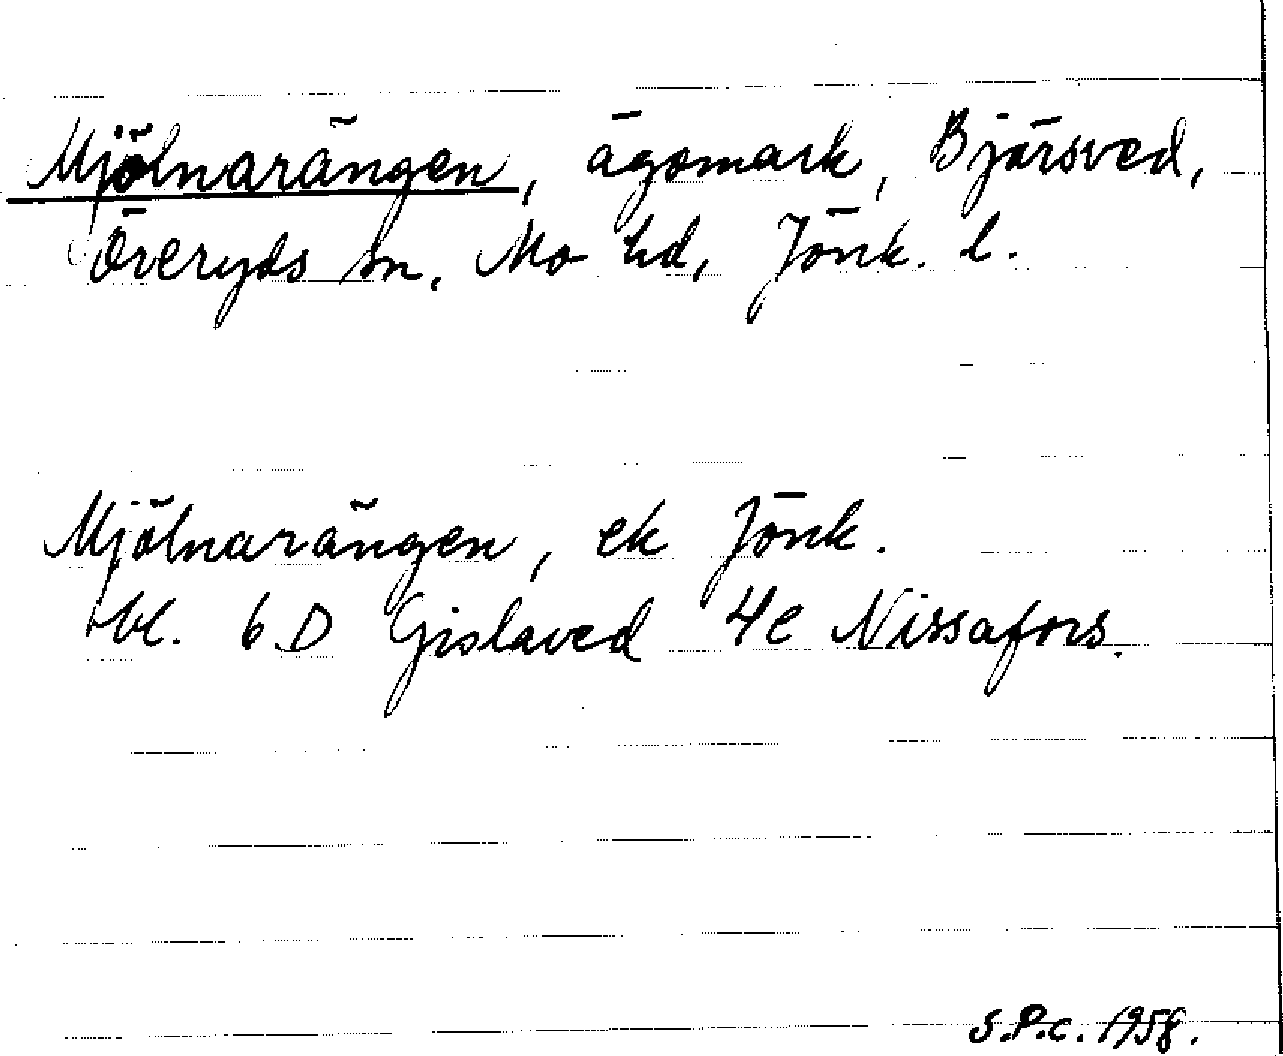 Mjölnarängen, ägomark, Bjärsved,
Öreryds sn, Mo hd, Jönk. l.
Mjölnarängen, ek Jönk.
bl. 6 D Gislaved 4e Nissafors.
S.P.C. 1958.